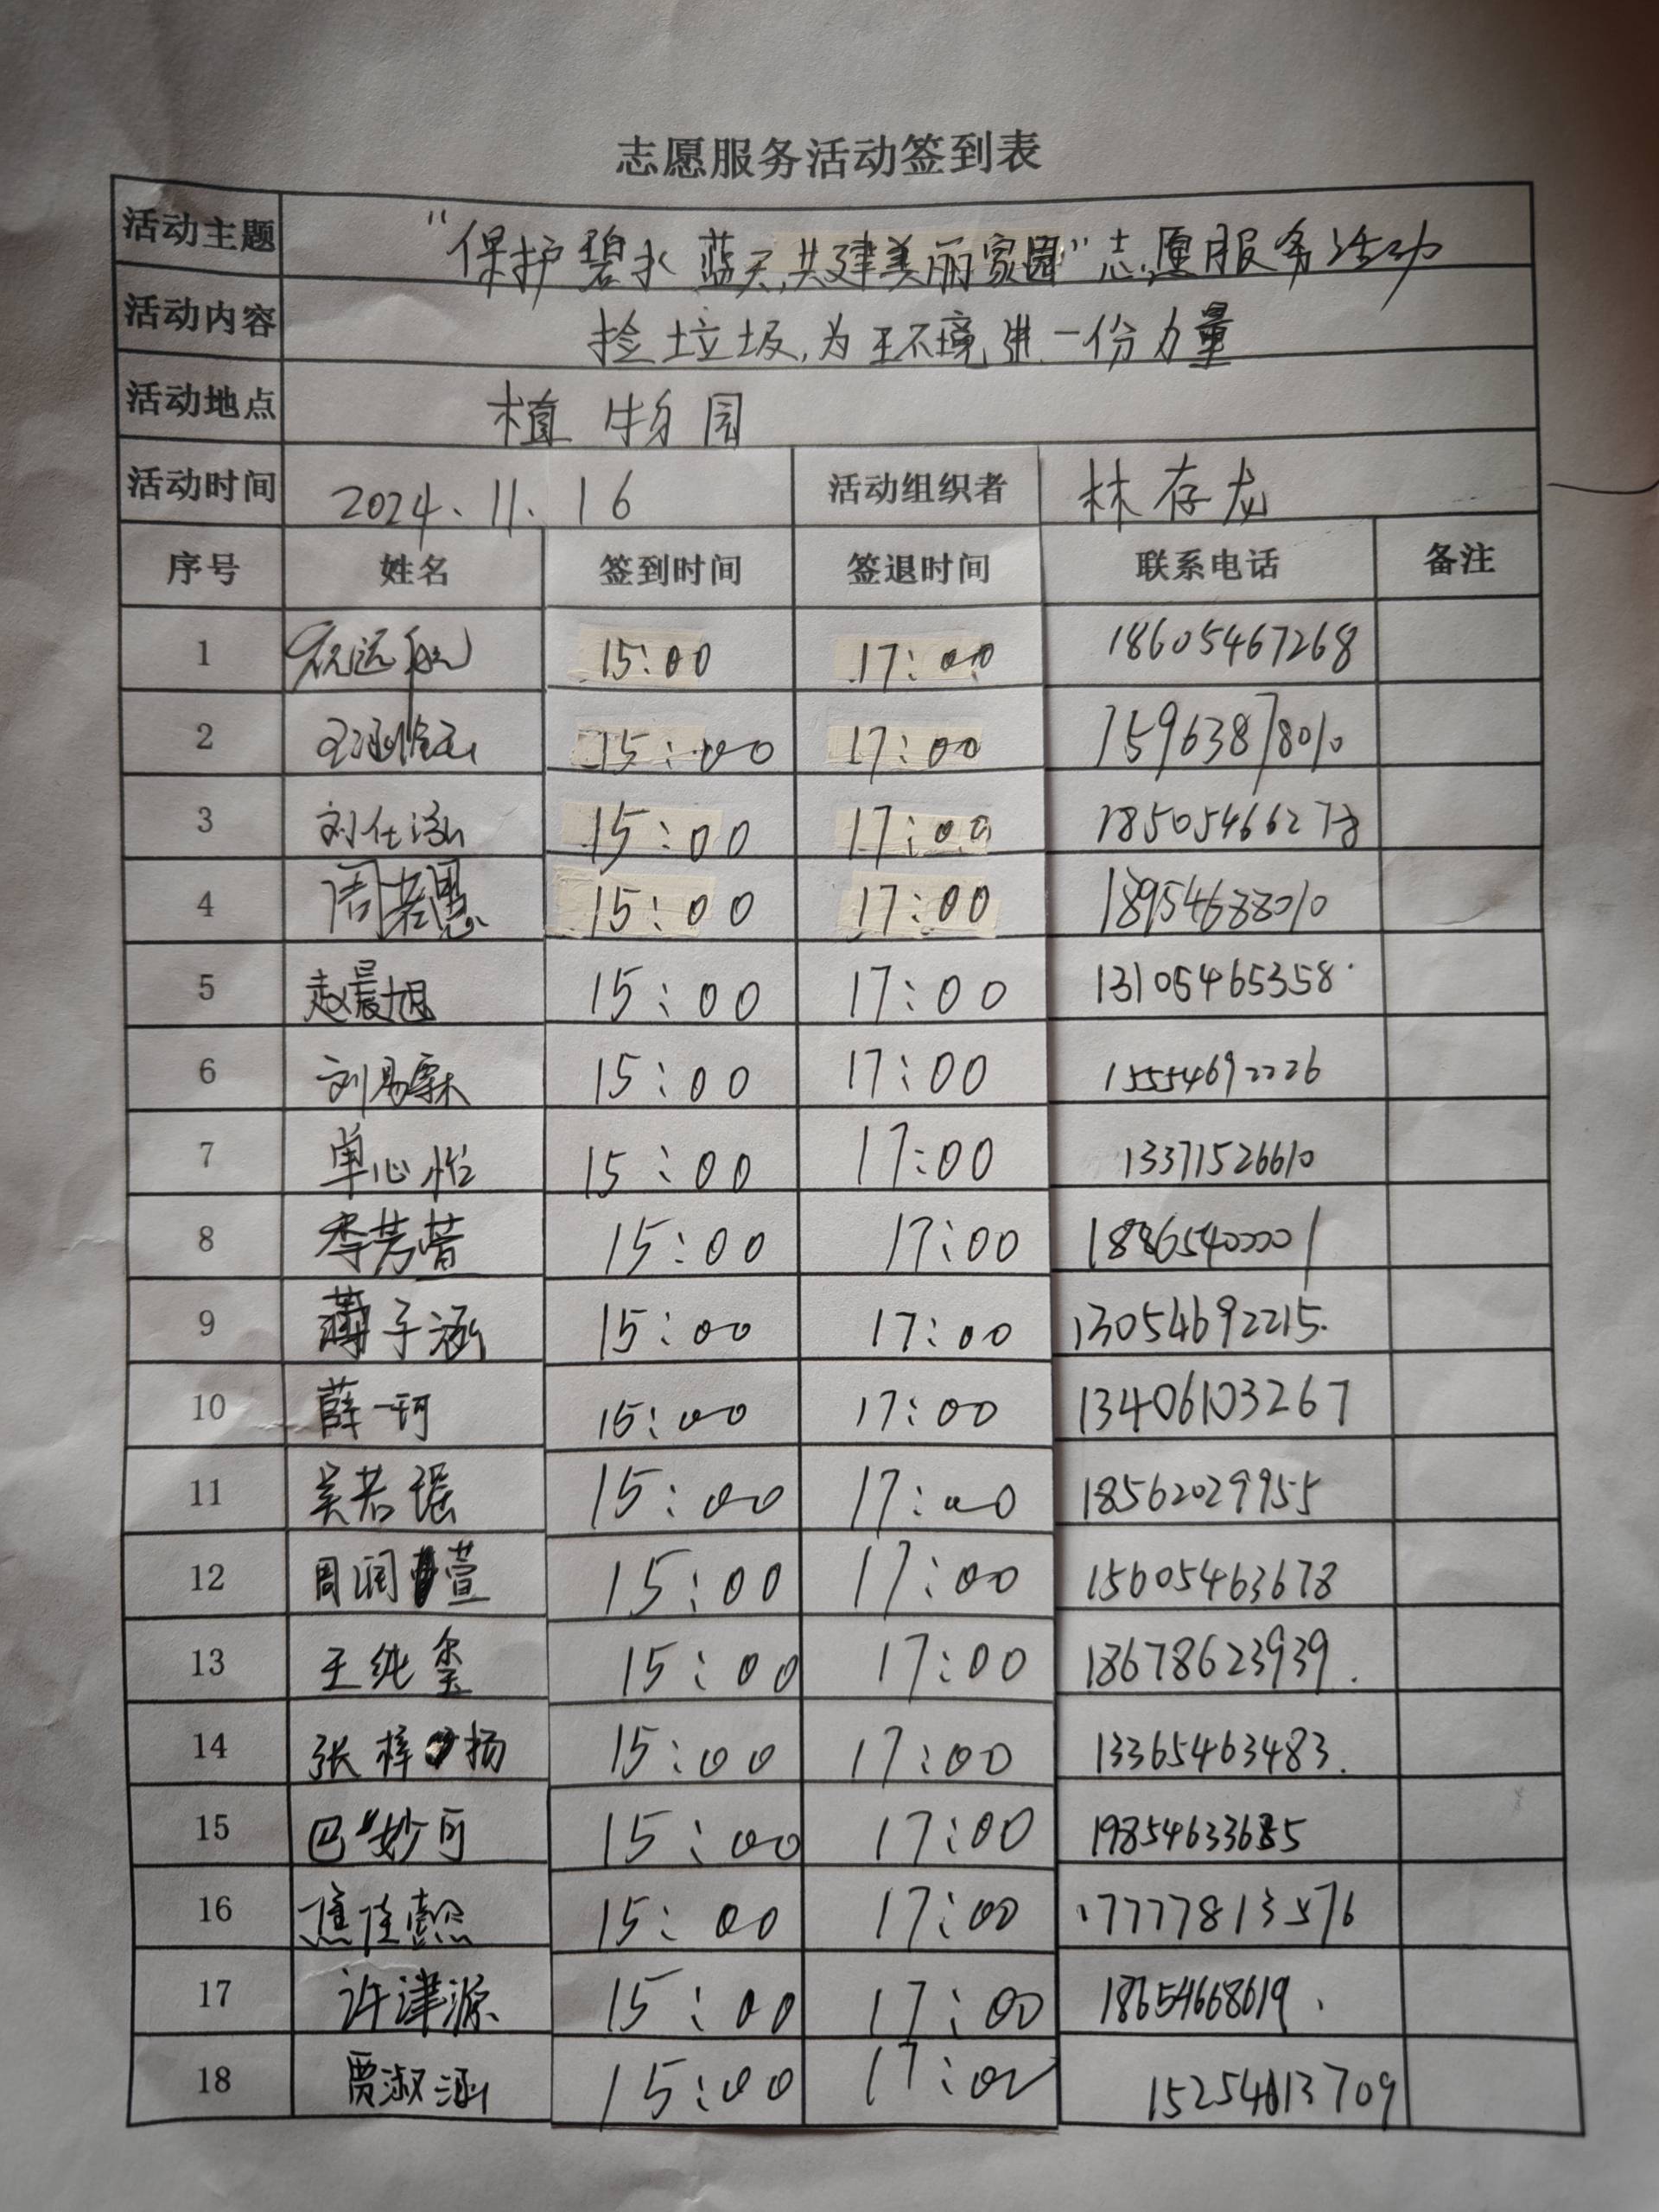 志愿服务活动签到表
活动主题 “保护碧水蓝天,共建美丽家园”志愿服务活动
活动内容 捡垃圾,为环境进一份力量
活动地点 植物园
活动时间 2024.11.16 活动组织者 林存龙
序号 姓名 签到时间 签退时间 联系电话 备注
1 15:00 17:00 18605467268
2 15:00 17:00 15963878010
3 刘仕泓 15:00 17:00 18505466278
4 周若愚 15:00 17:00 18954688010
5 赵晨旭 15:00 17:00 13105465358
6 刘易霖 15:00 17:00 15554692226
7 单心怡 15:00 17:00 13371526610
8 李芳萱 15:00 17:00 18865400001
9 薄子涵 15:00 17:00 13054692215.
10 薛一珂 15:00 17:00 13406103267
11 吴若瑶 15:00 17:00 18562029955
12 周润萱 15:00 17:00 15605463678
13 王纯玺 15:00 17:00 18678623939.
14 张梓扬 15:00 17:00 13365463483.
15 巴妙可 15:00 17:00 19854633685
16 15:00 17:00 17777813576
17 许津源 15:00 17:00 18654668619.
18 贾淑涵 15:00 17:00 15254613709